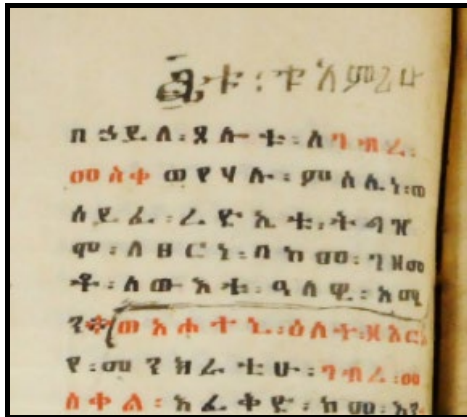 በኃይለ፡ጸሎቱ፡ለገብረ፡
መስቀ ወየሃሉ፡ምስሌነ፡ወ
ለይፈ፡ረድኤቱ፡ትዳግ
ሞ፡ለዘርነ፡በከመ፡ገዘመ
ቶ፡ለውእቱ፡ዓለዊ፡አሜ
ን፨ወአሐተኒ፡ዕለተ፡ጸእር፡
የ፡መንክራቲሁ፡ገብረ፡መ
ስቀል፡አፈቅድ፡ከመ፡እን